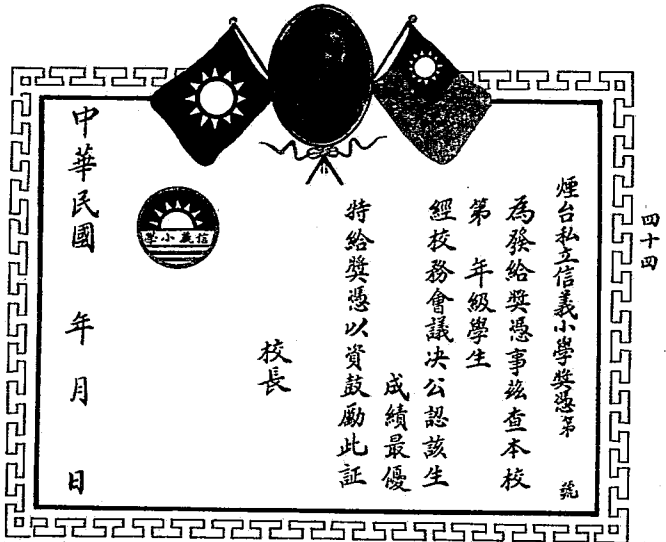 四十四
煙台私立信義小學奬憑第　號
為發給奬憑事茲查本校
第　年級學生
經校務會議决公認該生
成績最優
特給奬憑以資鼓勵此証
校長
學小義信
中華民國　年　月　日